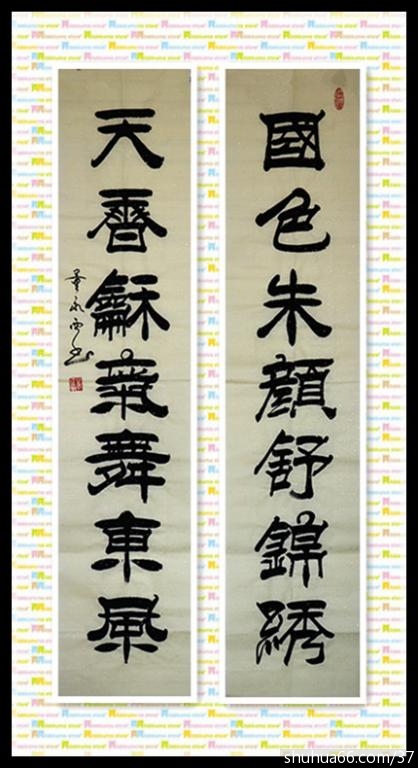 國色朱顔舒錦綉
天香龢氣舞東風
shuhua66.com/37